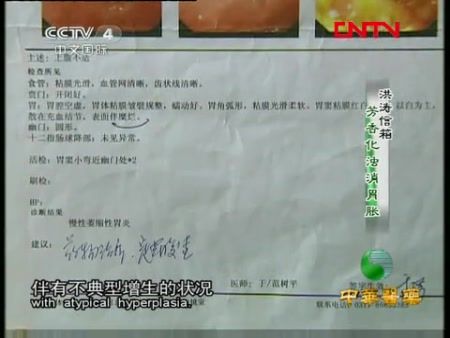 CCTV 4
中文国际
CNTN
主述：上腹不适
检查所见
食管：粘膜光滑，血管网清晰，齿状线清晰。
贲门：开闭好。
胃：胃腔空虚，胃体粘膜皱襞规整，蠕动好。胃角弧形，粘膜光滑柔软。胃窦粘膜红白
以白为主，
散在充血结节，表面伴糜烂。
幽门：圆形。
十二指肠球降部：未见异常。
活检：胃窦小弯近幽门处*2
刷检：
HP:
诊断结果
慢性萎缩性胃炎
建议：
药物治疗
医师：于/范树平
联系电话
洪涛信箱
芳香化浊消胃胀
中华医药
伴有不典型增生的状况
with atypical hyperplasia.